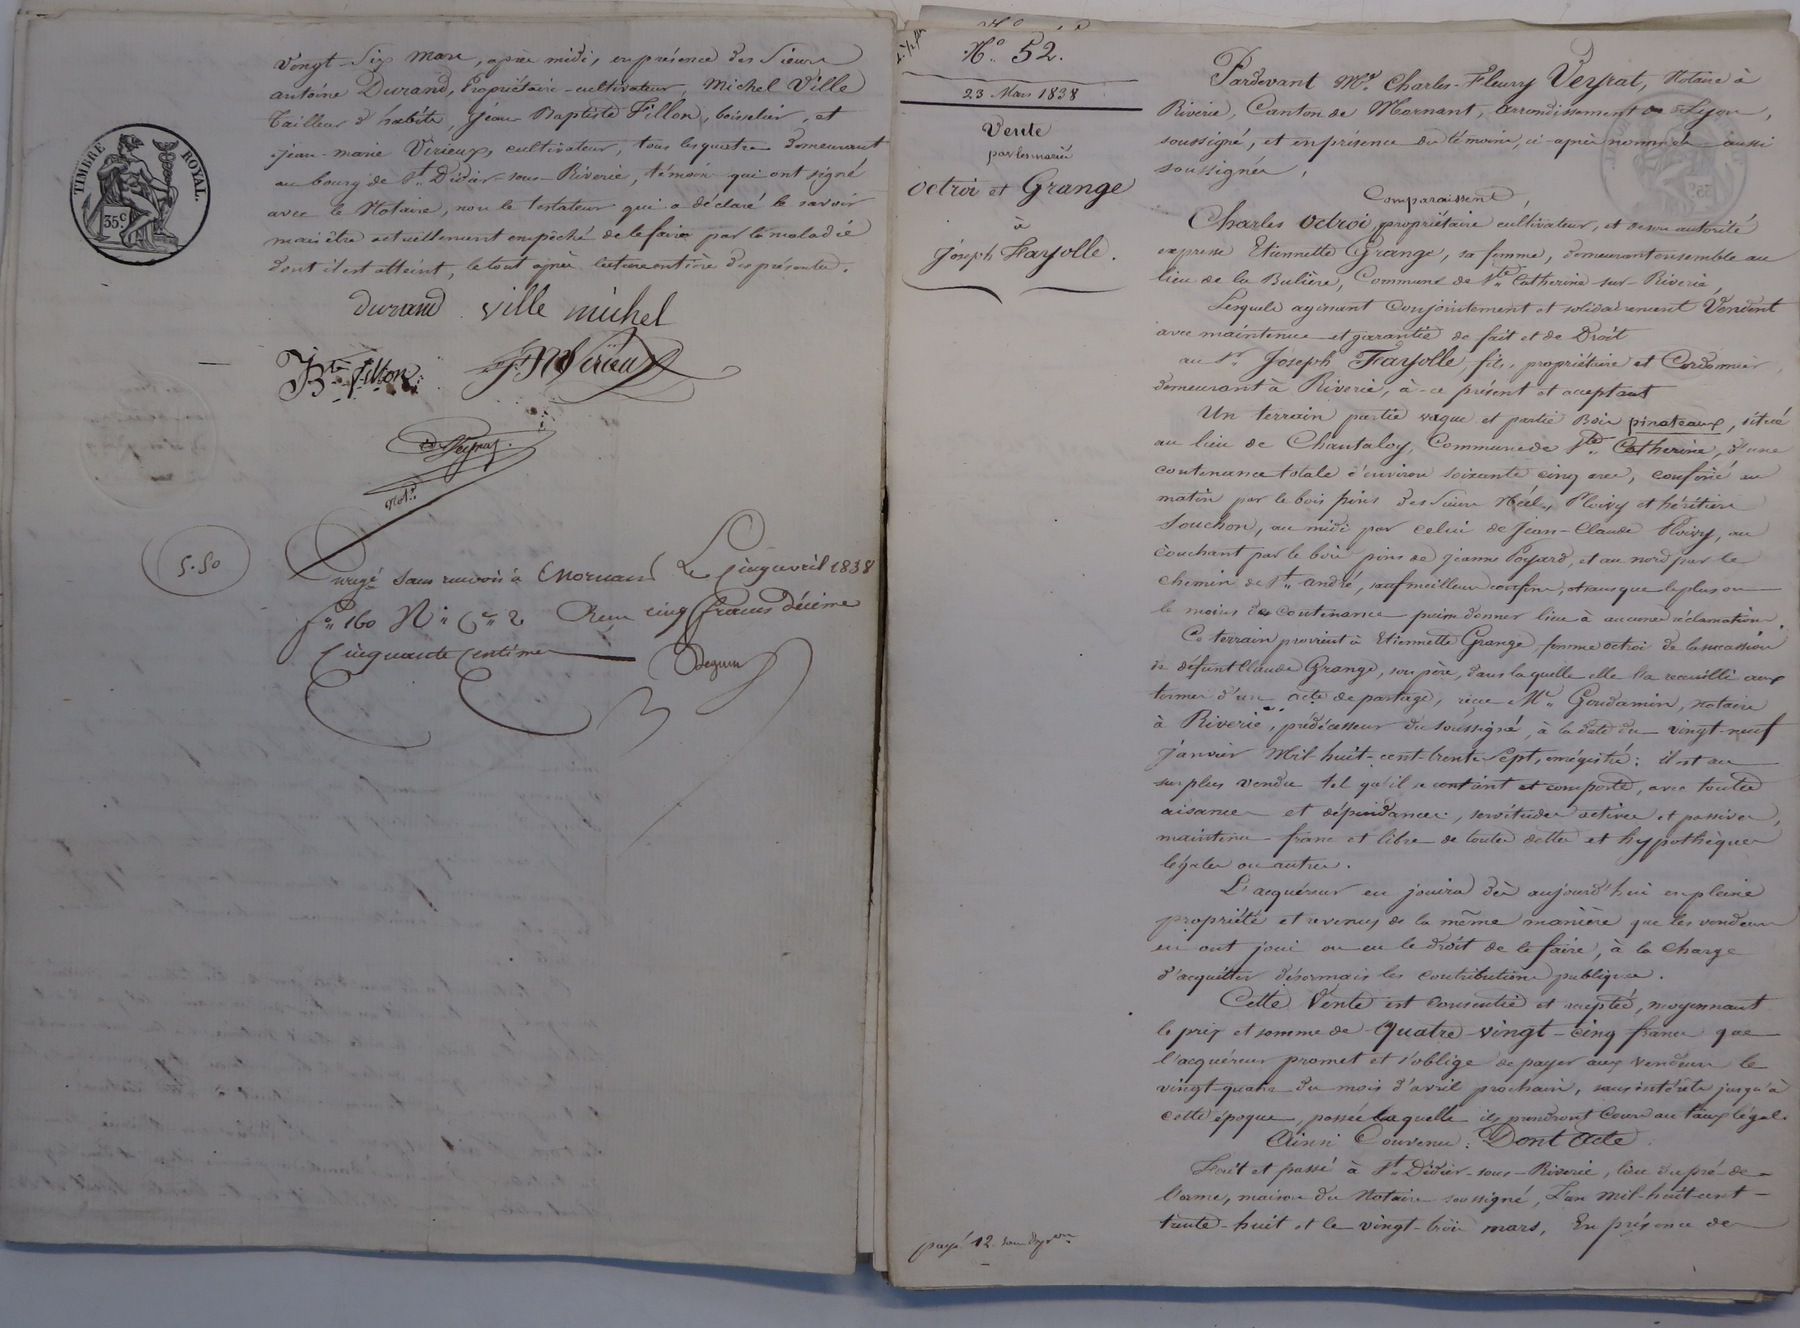 vingt-six mars, après midi, en présence des sieurs
antoine Durand, Propriétaire-cultivateur, Michel Ville
tailleur d'habits, Jean Baptiste Fillon, boisselier, et
jean-marie Virieux, cultivateur, tous les quatre demeurant
au bourg de St Didier-sous-Riverie, témoins qui ont signé
avec le Notaire, non le testateur qui a déclaré le savoir
mais être actuellement empêché de le faire par la maladie
dont il est atteint, le tout après lecture entière des présentes.
TIMBRE ROYAL.
35c
durand ville michel
JBte fillon JM Virieux
Veyrat
Not.
5.50
Enregé sans renvoi à Mornant Le cinq avril 1838
fo 160 Ro Ce 2 Reçu cinq francs décime
Cinquante centimes
No 52.
23 Mars 1838
Vente
par les mariés
Octroi et Grange
à
Joseph Fayolle.
Pardevant Me Charles-Fleury Veyrat, Notaire à
Riverie, Canton de Mornant, arrondissement de Lyon,
soussigné, et en présence des témoins, ci-après nommés aussi
soussignés,
Comparaissent,
Charles Octroi, propriétaire cultivateur, et de son autorité
expresse Etiennette Grange, sa femme, demeurant ensemble au
lieu de la Bulière, Commune de Ste Catherine-sur-Riverie,
Lesquels agissant conjointement et solidairement Vendent
avec maintenue et garantie de fait et de Droit
au Sr Joseph Fayolle, fils, propriétaire et Cordonnier,
demeurant à Riverie, à-ce présent et acceptant
Un terrain partie vague et partie Bois pinateaux, situé
au lieu de Chantaloy, Commune de Ste Catherine, d'une
contenance totale d'environ soixante cinq ares, confiné au
matin par le bois pins des sieurs Néel, Ploivy et héritiers
Souchon, au midi par celui de Jean-Claude Ploivy, au
couchant par le bois pins de jeanne Poyard, et au nord par le
chemin de St André, sauf meilleurs confins, et sans que le plus ou
le moins de contenance puisse donner lieu à aucune réclamation.
Ce terrain provient à Etiennette Grange, femme octroi de la succession
de défunt Claude Grange, son père, dans laquelle elle l'a recueilli aux
termes d'un acte de partage, reçu Me Goudamin, notaire
à Riverie, prédécesseur du soussigné, à la date du vingt-neuf
janvier Mil huit-cent-trente sept, enregistré: il est au
surplus vendu tel qu'il se contient et comporte, avec toutes
aisances et dépendances, servitudes actives et passives,
maintenu franc et libre de toutes dettes et hypothèques
légales ou autres.
L'acquéreur en jouira dès aujourd'hui en pleine
propriété et revenus de la même manière que les vendeurs
en ont joui ou eu le droit de le faire, à la charge
d'acquitter désormais les contributions publiques.
Cette Vente est consentie et acceptée, moyennant
le prix et somme de quatre-vingt-cinq francs que
l'acquéreur promet et s'oblige de payer aux vendeurs le
vingt-quatre du mois d'avril prochain, sans intérêts jusqu'à
cette époque, passée laquelle ils prendront cours au taux légal.
Ainsi Convenu: Dont Acte.
Fait et passé à St Didier-sous-Riverie, lieu du pré-de-
lorme, maison du Notaire soussigné, L'an mil-huit-cent-
trente-huit et le vingt-trois mars, En présence de
payé 12